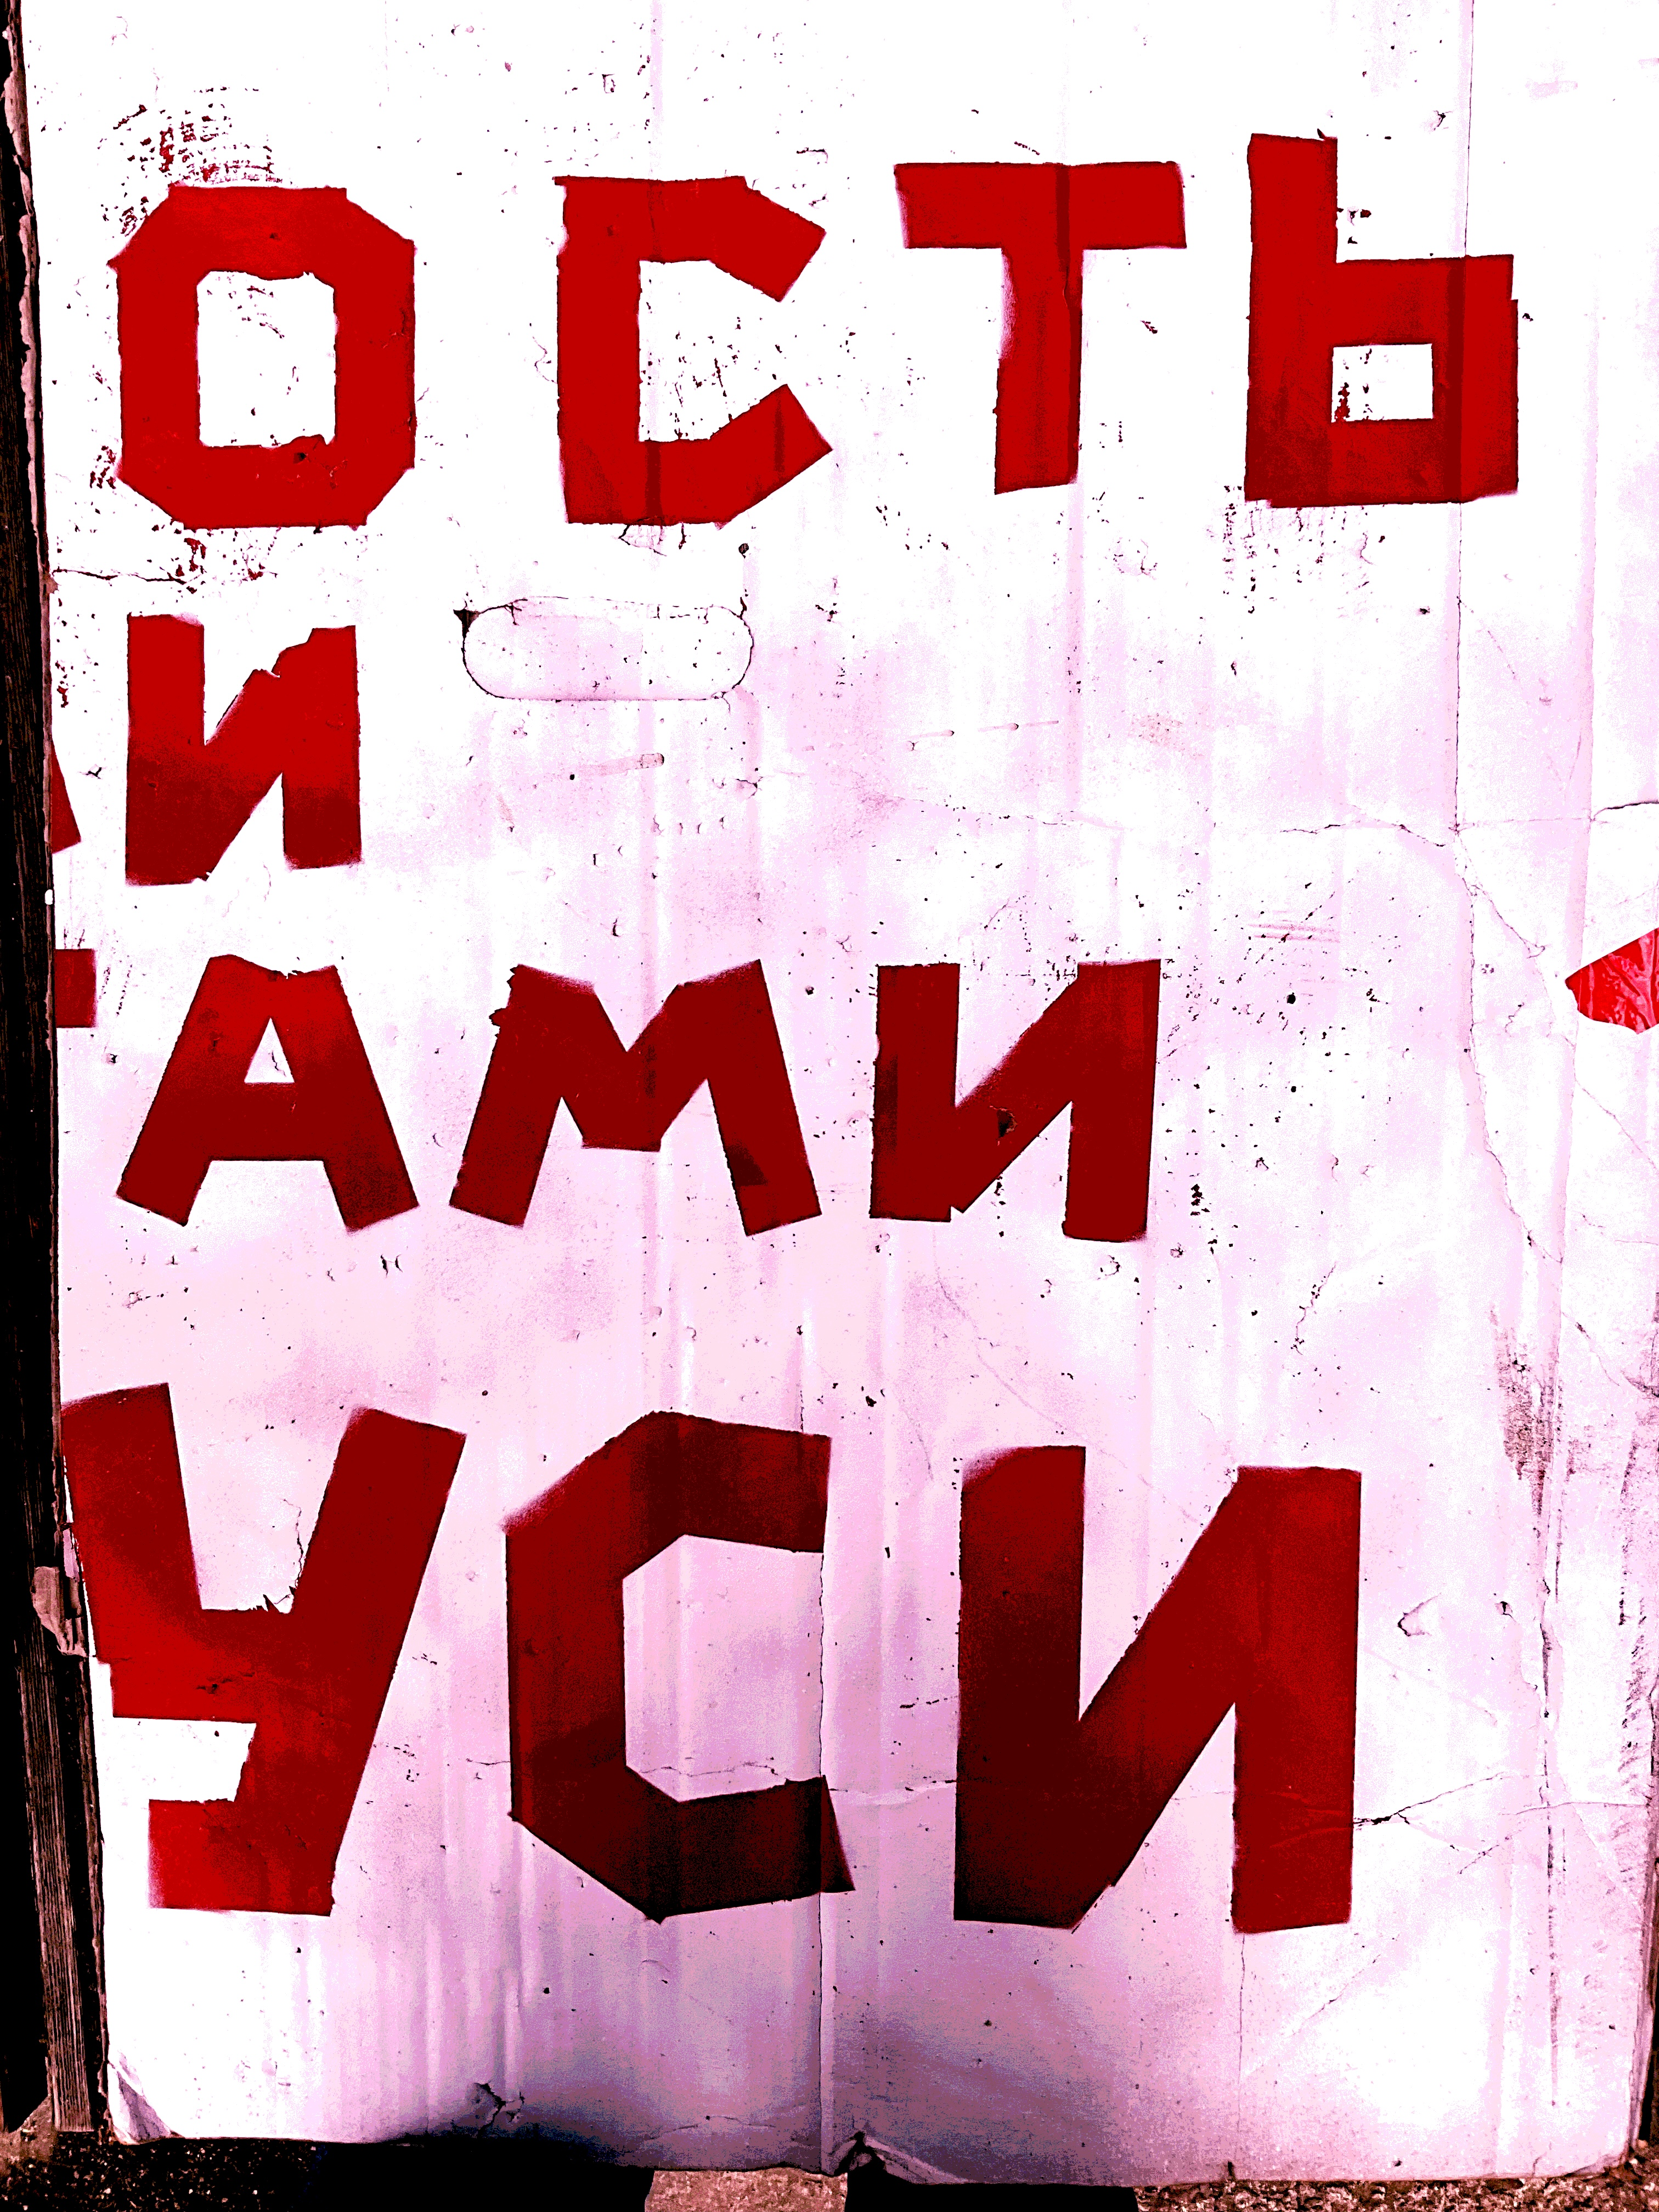 ОСТЬ
И
АМИ
УСИ